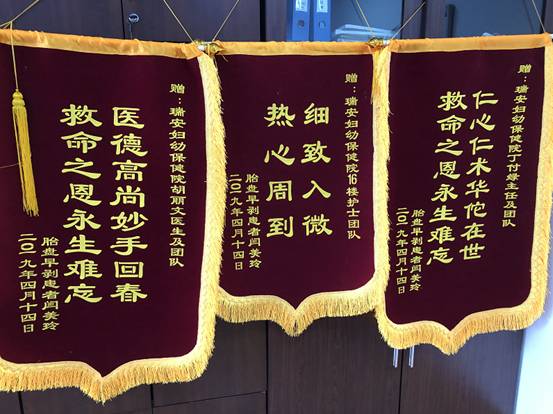 赠：瑞安妇幼保健院胡丽文医生及团队
医德高尚妙手回春
救命之恩永生难忘
胎盘早剥患者闫美玲
二〇一九年四月十四日
赠：瑞安妇幼保健院16楼护士团队
细致入微
热心周到
胎盘早剥患者闫美玲
二〇一九年四月十四日
赠：瑞安妇幼保健院丁付母主任及团队
仁心仁术华佗在世
救命之恩永生难忘
胎盘早剥患者闫美玲
二〇一九年四月十四日